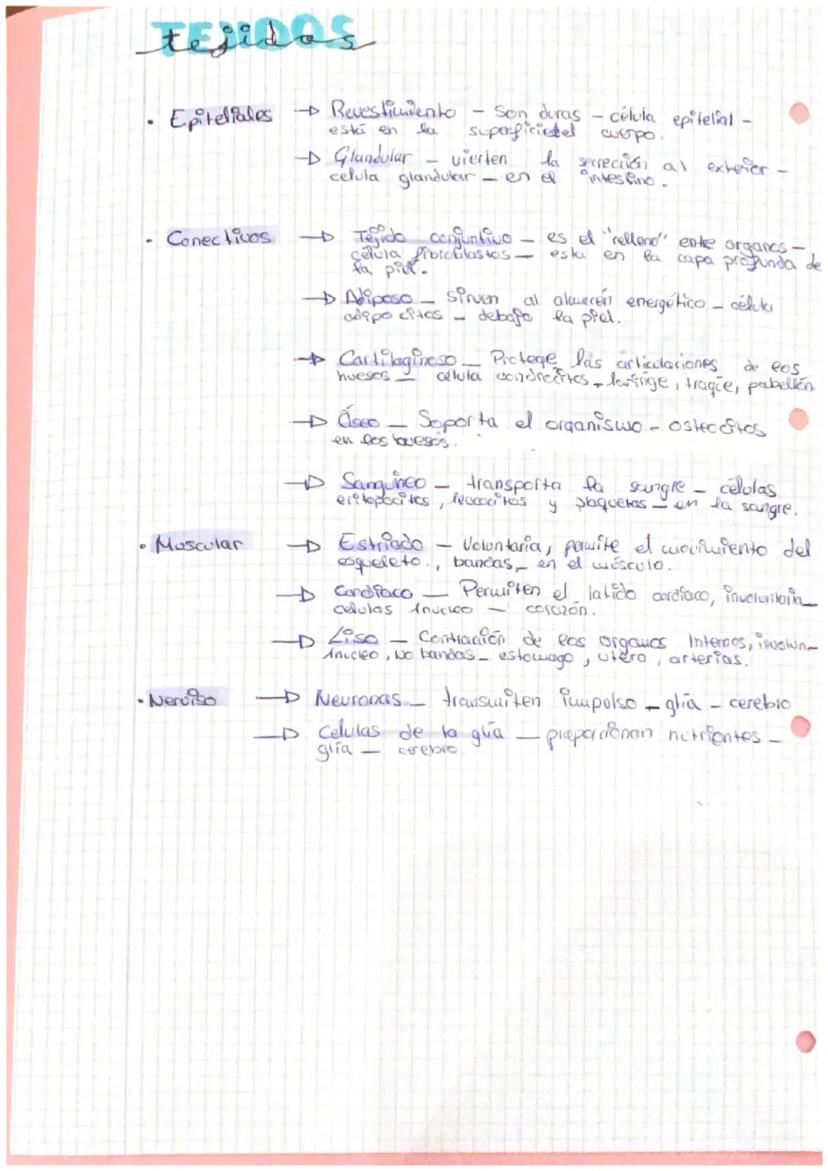 TEJIDOS
tejidos
· Epiteliales → Revestimiento - Son duras - célula epitelial -
está en la superficie del cuerpo.
→ Glandular - vierten la secreción al exterior -
celula glandular - en el intestino.
· Conectivos → Tejido conjuntivo - es el "relleno" entre organos -
célula fibroblastos - esta en la capa profunda de
la piel.
→ Adiposo - sirven al almacén energético - célula
adipocitos - debajo la piel.
→ Cartilaginoso - Protege las articulaciones de los
huesos - célula condrocitos - laringe, traqúe, pabellón
→ Óseo - Soporta el organismo - osteocitos
en los huesos.
→ Sanguíneo - transporta la sangre - células
eritopocitos, leucocitos y plaquetas - en la sangre.
· Muscular → Estriado - Voluntaria, permite el movimiento del
esqueleto., bandas - en el músculo.
→ Cardíaco - Permiten el latido cardíaco, involuntain
celulas 1nucleo - corazón.
→ Liso - Contracción de los organos internos, involun-
1nucleo, no bandas - estomago, utero, arterias.
· Nerviso → Neuronas - transmiten impulso - glía - cerebro
→ Celulas de la glía - proporcionan nutrientes -
glía - cerebro